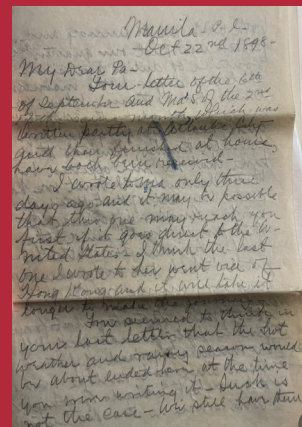 Manila P.I.
Oct 22nd 1898-
My Dear Pa-
Your letter of the 6th
of September and Ma's of the 2nd
which was
written partly at
yard then finished at house
have both been received-
I wrote to Ma only three
days ago and it may be possible
that this one may reach you
first if it goes direct to the U-
nited States- I think the last
one I wrote to her went via of
Hong Kong and it will take it
longer to make the
You seemed to think in
your last letter that the hot
weather and rainy season would
be about ended here at the time
you were writing it- Such is
not the case- We still have them